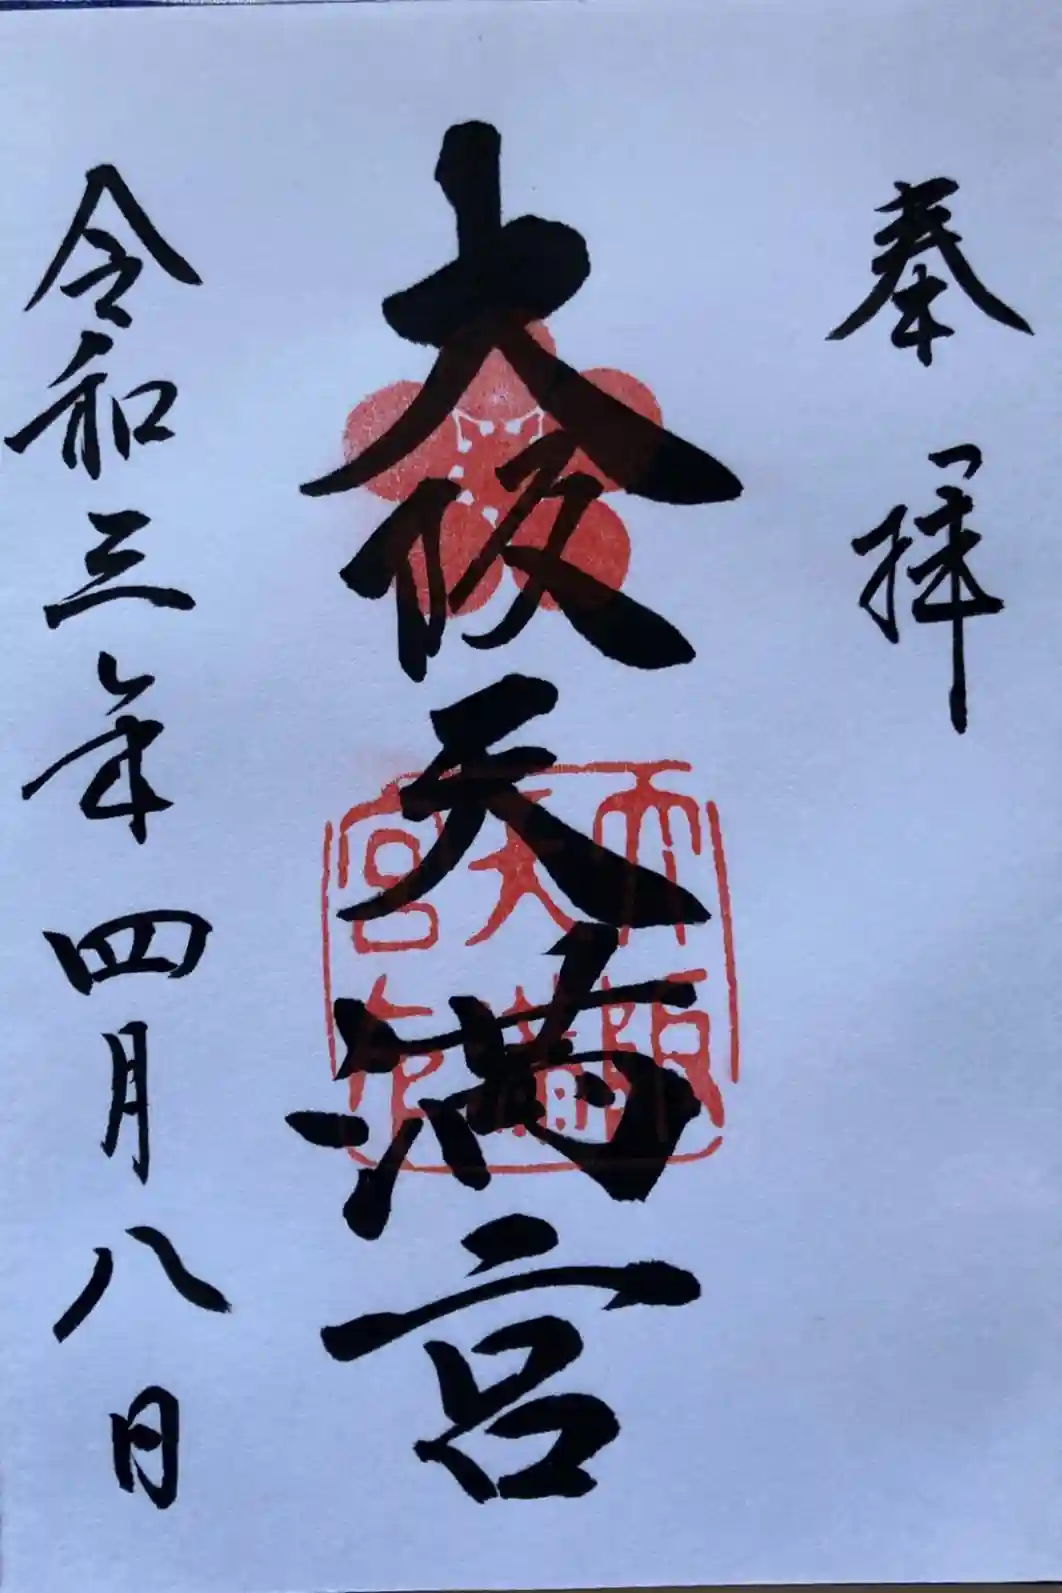 奉拝
大阪天満宮
令和三年四月八日
大阪
天満
宮印